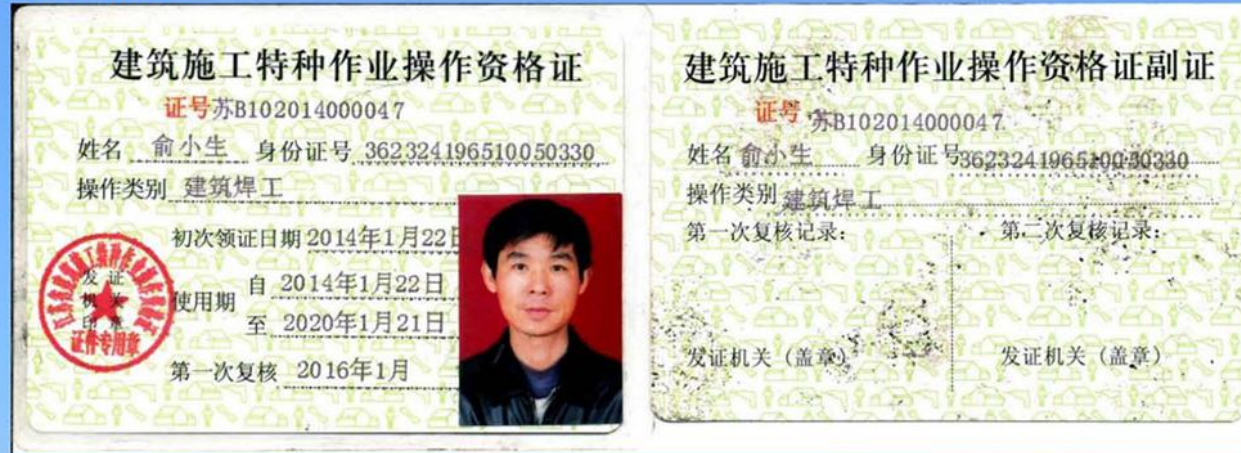 建筑施工特种作业操作资格证
证号苏B102014000047
姓名 俞小生 身份证号 362324196510050330
操作类别 建筑焊工
初次领证日期 2014年1月22日
发证
机关
印章
使用期 自 2014年1月22日
至 2020年1月21日
证件专用章
第一次复核 2016年1月
建筑施工特种作业操作资格证副证
证号 苏B102014000047
姓名 俞小生 身份证号 362324196510050330
操作类别 建筑焊工
第一次复核记录: 第二次复核记录:
发证机关(盖章) 发证机关(盖章)